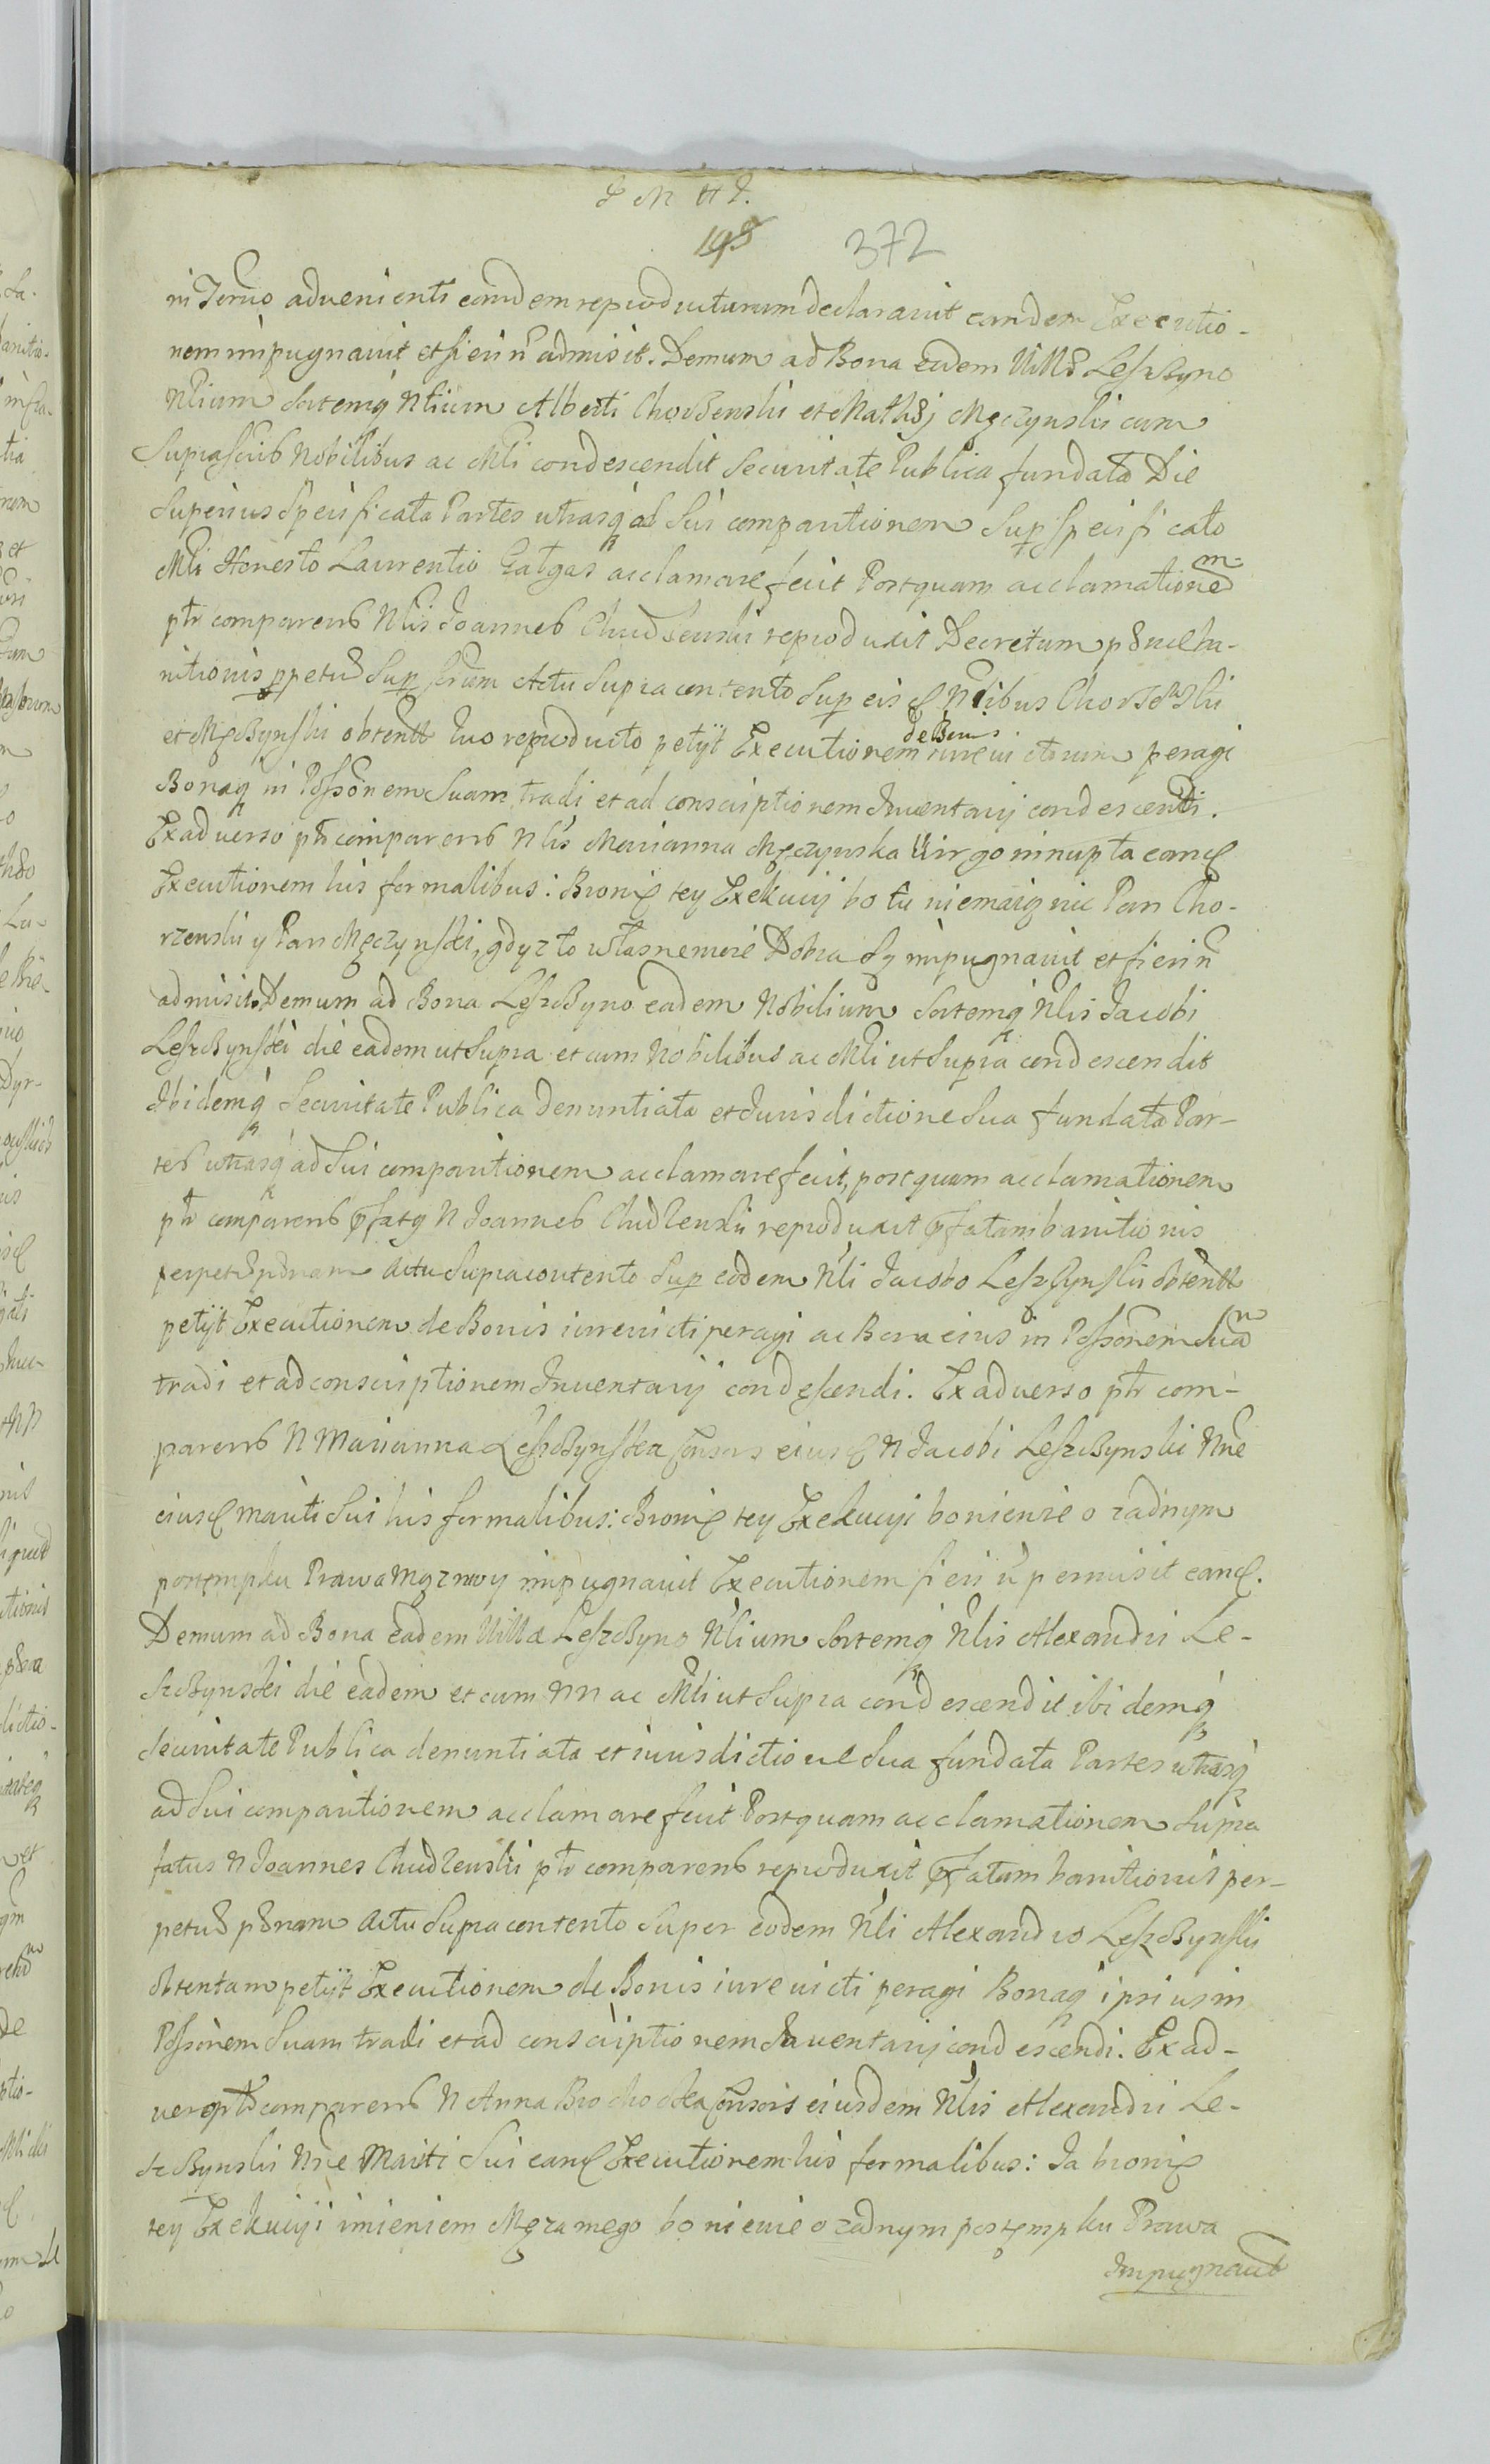 198 372
in Termino advenienti eandem reproducturum declaravit eandem Executio-
nem impugnavit et fieri n admisit. Demum ad Bona eadem Villae Leszczyno
Nlium Sortemq Nlium Alberti Chorzenski et Mathaej Męczynski cum
Suprascrib Nobilibus ac Mli condescendit Securitate Publica fundata Die
Superius Speisficata Partes utrasq ad Sui comparitionem Sup Speisficato
Mli Honesto Laurentio Gałgas acclamare fecit Postquam acclamationem
ptr comparens Nlis Joannes Chudzenski reproduxit Decretum paenae ba-
nitionis ppetuae Sup Actu Supra contento Sup eisd Nlibus Chorzenski
et Męczynski obtentt quo reproducto petijt Executionem de Bonis iurevictorum peragi
Bonaq in Possonem Suam tradi et ad conscriptionem Inventarij condescendi.
Ex adverso ptr comparens Nlis Marianna Męczynska Virgo innupta eand
Executionem his formalibus: Bronię tey Exekucij bo tu niemaią nic Pan Cho-
rzenski y Pan Męczynski, gdyz to własne moie Dobra Są impugnavit et fieri n
admisit. Demum ad Bona Leszczyno eadem Nobilium Sortemq Nlis Jacobi
Leszczynski die eadem ut Supra et cum Nobilibus ac Mli ut Supra condescendit
Ibidemq Securitate Publica denuntiata et Jurisdictione Sua fundata Par-
tes utrasq ad Sui comparitionem acclamare fecit, postquam acclamationem
ptr comparens pfatq N Joannes Chudzenski reproduxit pfatam banitionis
perpetuae paenam Actu Supracontento Sup eodem Nli Jacobo Leszczynski obtentt
petijt Executionem de Bonis iurevicti peragi ac Bona eius in Possonem Suam
tradi et ad conscriptionem Inventarij condescendi. Ex adverso ptr com-
parens N Marianna Leszczynska Consors eiusd N Jacobi Leszczynski Nne
eiusd mariti Sui his formalibus: Bronię tey Exekucyi bo niewie o zadnym
postempku Prawa Mąz moy impugnavit Executionem fieri n permisit eand.
Demum ad Bona Eadem Villae Leszczyno Nlium Sortemq Nlis Alexandri Le-
szczynski die eadem et cum NN ac Mli ut Supra condescendit ibidemq
Securitate Publica denuntiata et iurisdictione Sua fundata Partes utrasq
ad Sui comparitionem acclamare fecit Postquam acclamationem Supra
fatus N Joannes Chudzenski ptr comparens reproduxit pfatam banitionis per-
petuae paenam Actu Supra contento Super eodem Nli Alexandro Leszczynski
obtentam petijt Executionem de Bonis iurevicti peragi Bonaq ipsius in
Possonem Suam tradi et ad conscriptionem Inventarij condescendi. Ex ad-
verso ptr comparens N Anna Brochocka Consors eiusdem Nlis Alexandri Le-
szczynski Nne Mariti Sui eand Executionem his formalibus: Ja bronię
tey Exekucyi imieniem Męza mego bo niewie o zadnym postempku Prawa
Impugnavit